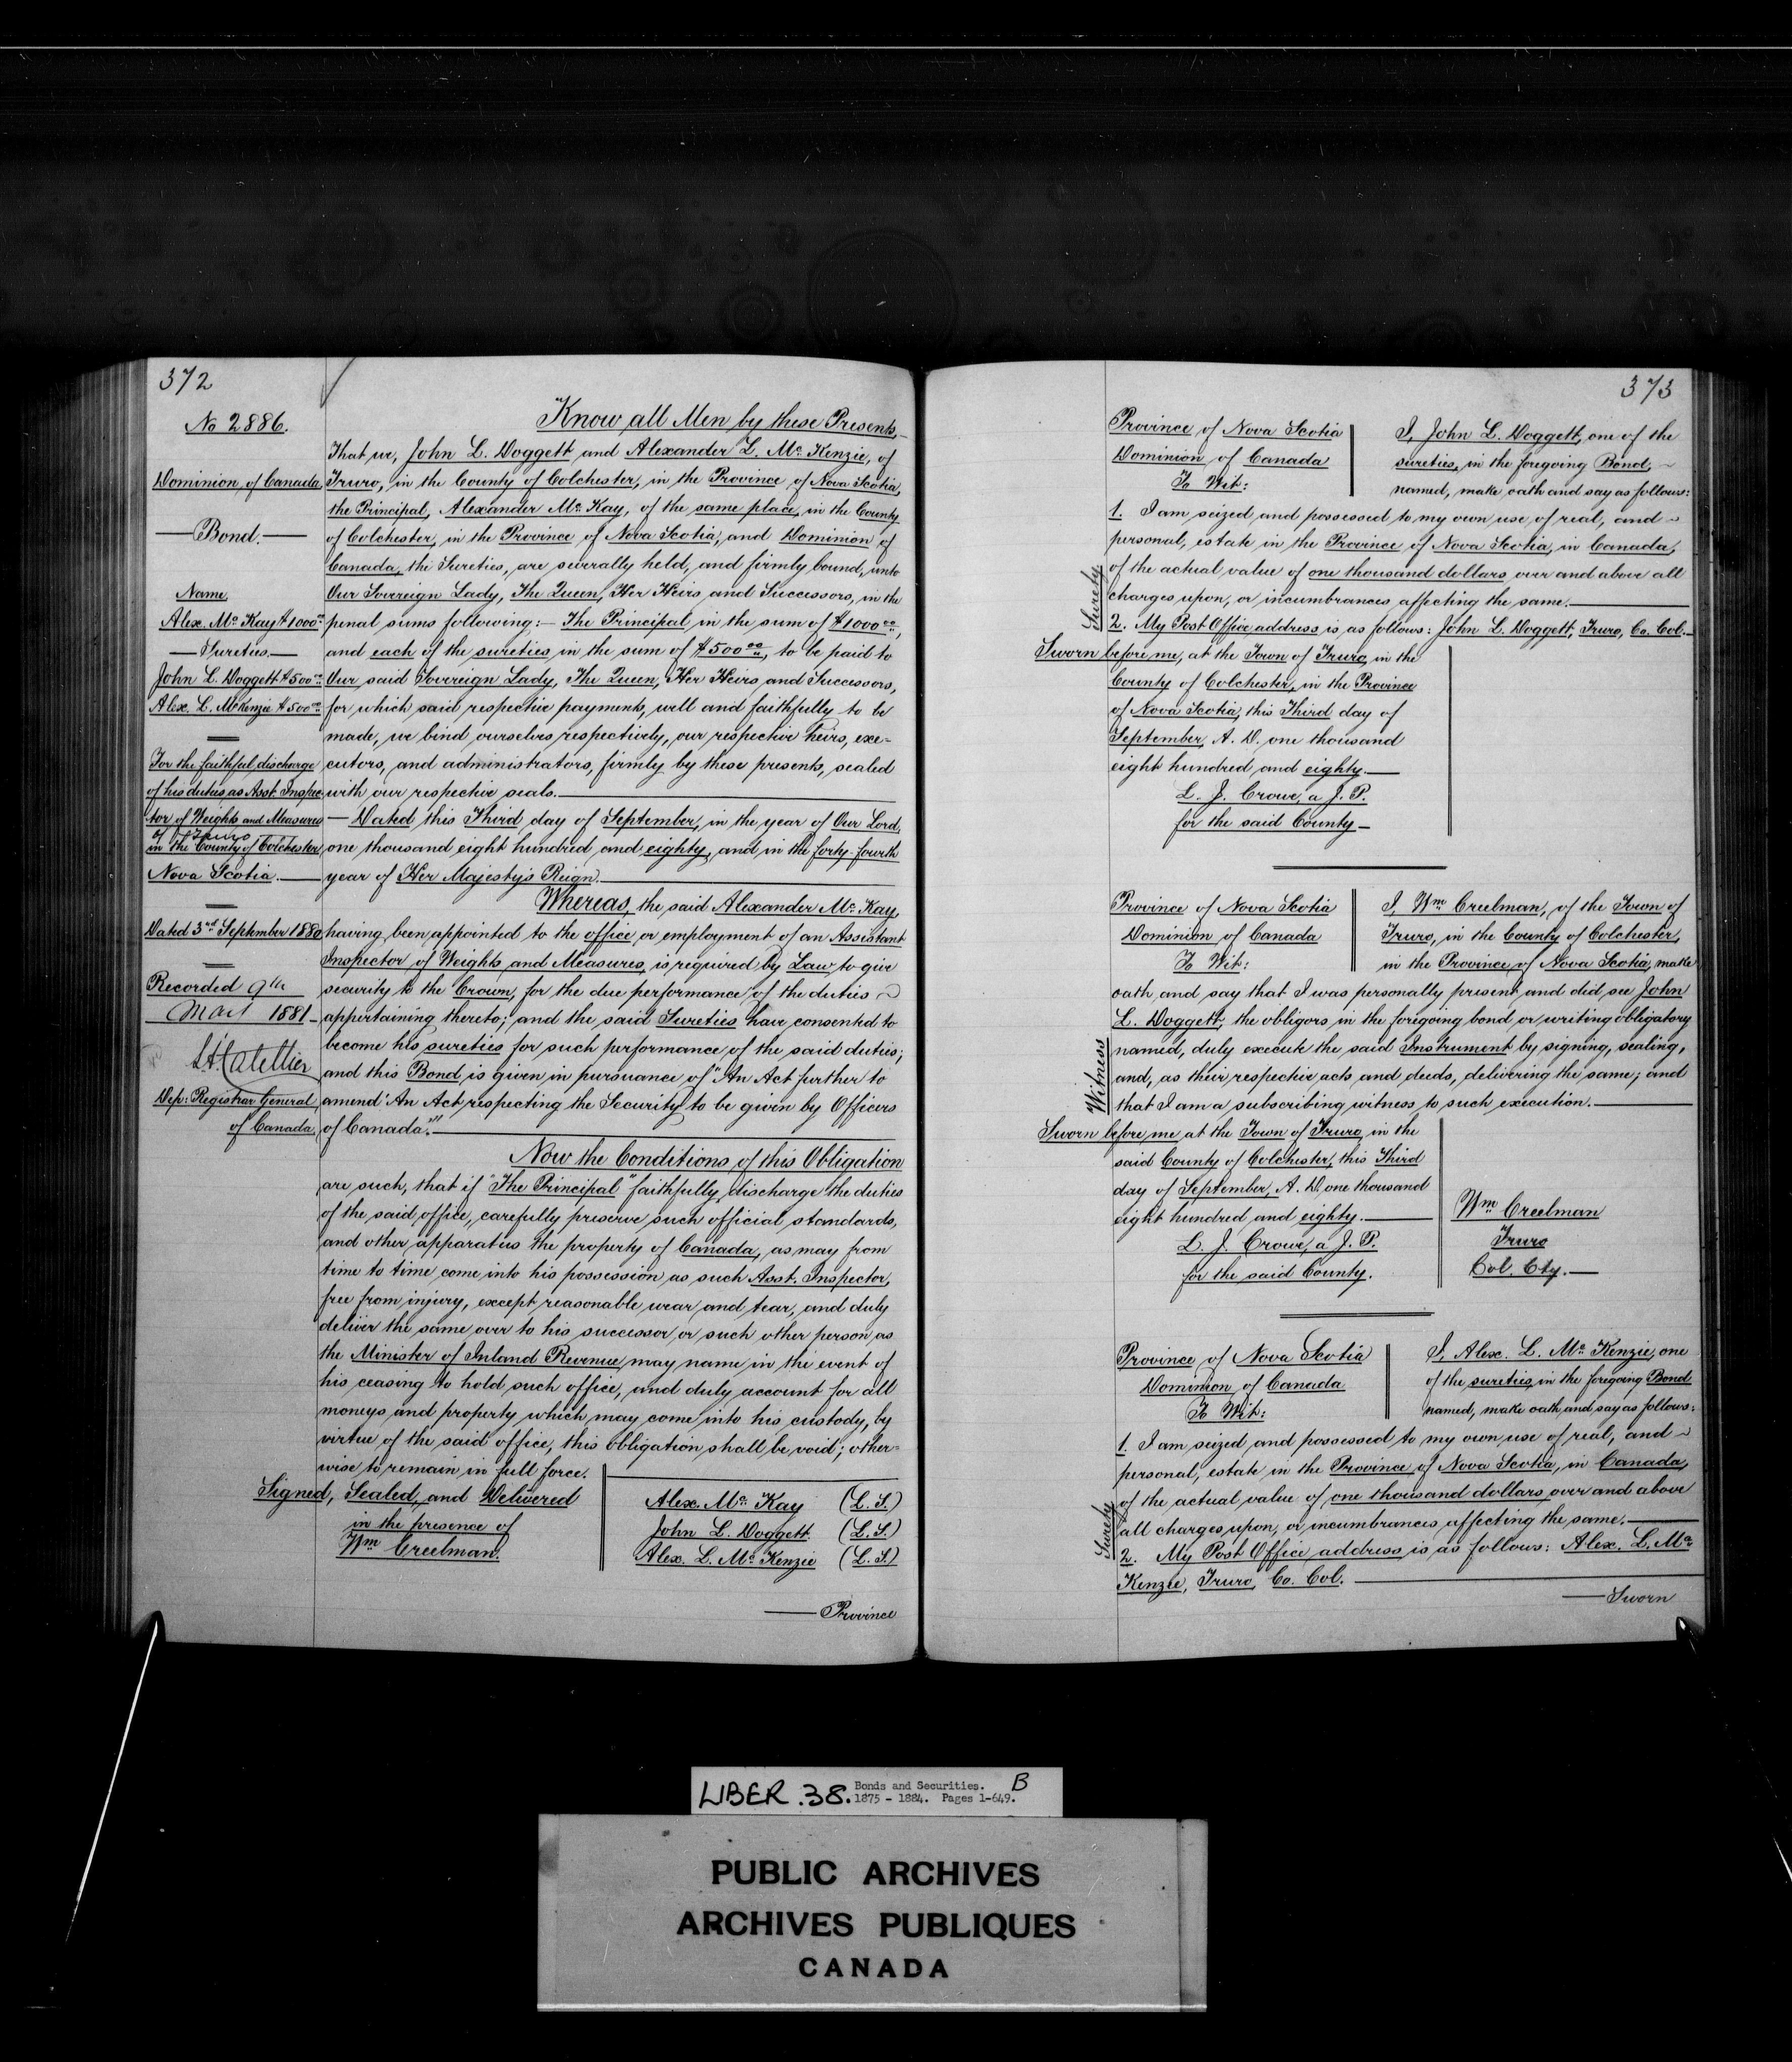 372
No 2886.
Dominion of Canada
Bond.
Name
Alex. Mc Kay $1000 00
Sureties
John L. Doggett $500 00
Alex. L. McKenzie $500 00
For the faithful discharge
of his duties as Asst. Inspec-
tor of Weights and Measures
of Truro
in the County of Colchester
Nova Scotia.
Dated 3rd September 1880
Recorded 9th
1881
Dep: Registrar General
of Canada.
Know all Men by these Presents,
That we, John L. Doggett and Alexander L. Mc Kenzie, of
Truro, in the County of Colchester, in the Province of Nova Scotia,
the Principal, Alexander Mc Kay, of the same place, in the County
of Colchester, in the Province of Nova Scotia, and Dominion of
Canada, the Sureties, are severally held, and firmly bound, unto
Our Sovereign Lady, The Queen, Her Heirs and Successors, in the
penal sums following:— The Principal in the sum of $1000 00,
and each of the sureties in the sum of $500 00, to be paid to
Our said Sovereign Lady, The Queen, Her Heirs and Successors,
for which said respective payments, well and faithfully to be
made, we bind ourselves respectively, our respective heirs, exe-
cutors, and administrators, firmly by these presents, sealed
with our respective seals.
— Dated this Third day of September, in the year of Our Lord,
one thousand eight hundred and eighty, and in the forty-fourth
year of Her Majesty's Reign.
Whereas, the said Alexander Mc Kay,
having been appointed to the office or employment of an Assistant
Inspector of Weights and Measures, is required by Law to give
security to the Crown, for the due performance of the duties
appertaining thereto; and the said Sureties have consented to
become his sureties for such performance of the said duties;
and this Bond is given in pursuance of "An Act further to
amend 'An Act respecting the Security to be given by Officers
of Canada.'"
Now the Conditions of this Obligation
are such, that if "The Principal" faithfully discharge the duties
of the said office, carefully preserve such official standards,
and other apparatus the property of Canada, as may from
time to time come into his possession as such Asst. Inspector,
free from injury, except reasonable wear and tear, and duly
deliver the same over to his successor or such other person as
the Minister of Inland Revenue may name in the event of
his ceasing to hold such office, and duly account for all
moneys and property which may come into his custody, by
virtue of the said office, this obligation shall be void; other-
wise to remain in full force.
Signed, Sealed, and Delivered
in the presence of
Wm Creelman.
Alex. Mc Kay (L. S.)
John L. Doggett (L. S.)
Alex. L. Mc Kenzie (L. S.)
— Province
373
Province of Nova Scotia
Dominion of Canada
To Wit:
I, John L. Doggett, one of the
sureties, in the foregoing Bond,
named, make oath and say as follows:
1. I am seized and possessed to my own use of real, and
personal, estate in the Province of Nova Scotia, in Canada,
of the actual value of one thousand dollars over and above all
charges upon, or incumbrances affecting the same.
2. My Post Office address is as follows: John L. Doggett, Truro, Co. Col.
Surety
Sworn before me, at the Town of Truro, in the
County of Colchester, in the Province
of Nova Scotia, this Third day of
September, A. D. one thousand
eight hundred and eighty.
L. J. Crowe, a J. P.
for the said County
Province of Nova Scotia
Dominion of Canada
To Wit:
I, Wm Creelman, of the Town of
Truro, in the County of Colchester,
in the Province of Nova Scotia, make
oath and say that I was personally present and did see John
L. Doggett, the obligors in the foregoing bond or writing obligatory
named, duly execute the said Instrument by signing, sealing,
and, as their respective acts and deeds, delivering the same; and
that I am a subscribing witness to such execution.
Witness
Sworn before me at the Town of Truro, in the
said County of Colchester, this Third
day of September, A. D. one thousand
eight hundred and eighty.
L. J. Crowe, a J. P.
for the said County.
Wm Creelman
Truro
Col. Cty.
Province of Nova Scotia
Dominion of Canada
To Wit:
I, Alex. L. Mc Kenzie, one
of the sureties, in the foregoing Bond
named, make oath and say as follows:
1. I am seized and possessed to my own use of real, and
personal, estate in the Province of Nova Scotia, in Canada,
of the actual value of one thousand dollars, over and above
all charges upon, or incumbrances affecting the same.
2. My Post Office address is as follows: Alex. L. Mc
Kenzie, Truro, Co. Col.
Surety
— Sworn
LIBER .38. Bonds and Securities. B
1875 - 1884. Pages 1-649.
PUBLIC ARCHIVES
ARCHIVES PUBLIQUES
CANADA